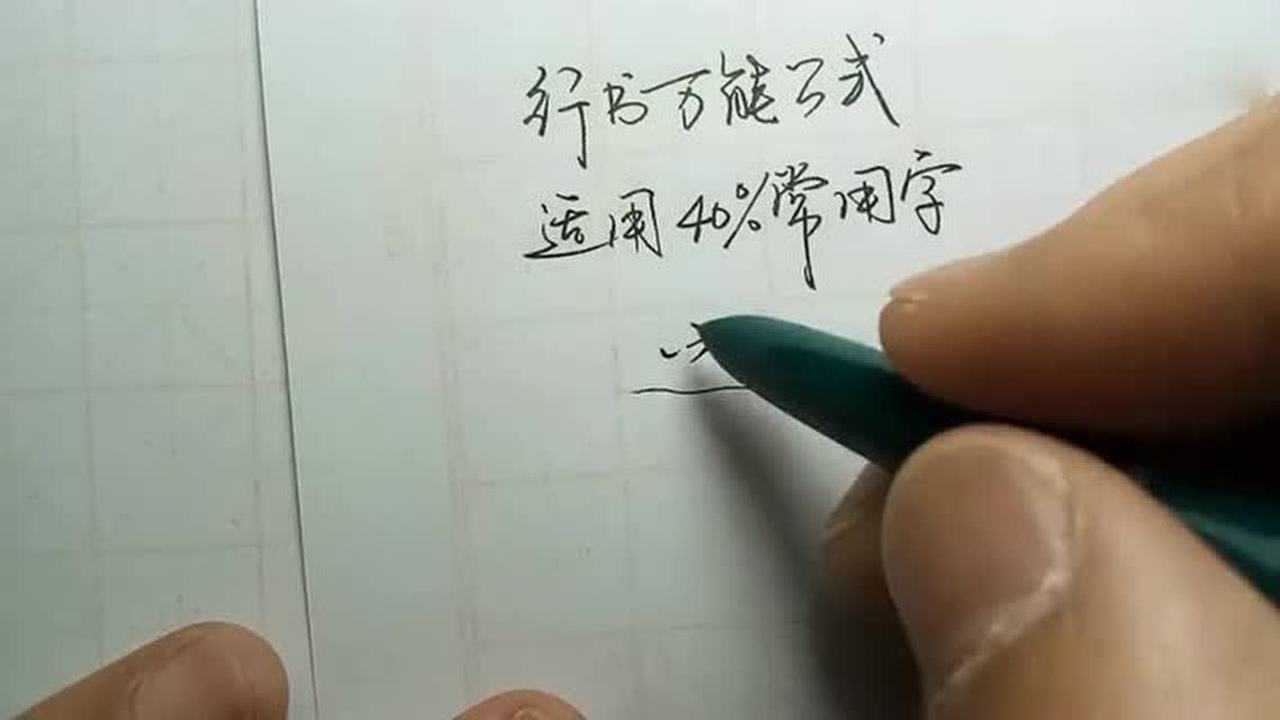 行书万能公式
适用40%常用字